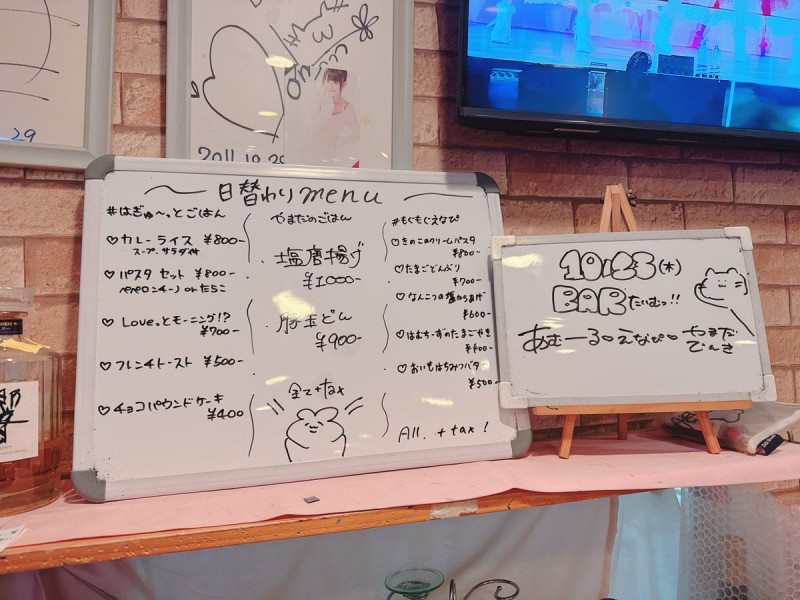 29
2011.10.29
日替わりmenu
#はぎゅ〜っとごはん
♡カレーライス ¥800-
スープ、サラダ付
♡パスタ セット ¥800-
ペペロンチーノ or たらこ
♡Loveっとモーニング!?
¥700-
♡フレンチトースト ¥500-
♡チョコパウンドケーキ
¥400
やまだのごはん
・塩唐揚げ
¥1000-
・豚玉どん
¥900-
全て+tax
#もぐもぐえなぴ
♡きのこのクリームパスタ
¥800-
♡たまごどんぶり
¥700-
♡なんこつの塩からあげ
¥600-
♡はむちーずのたまごやき
¥400-
♡おいもはちみつバター
¥500
All. + tax!
10/23(木)
BARたいむっ!!
あむーる♡えなぴ♡
やまだ
でんき